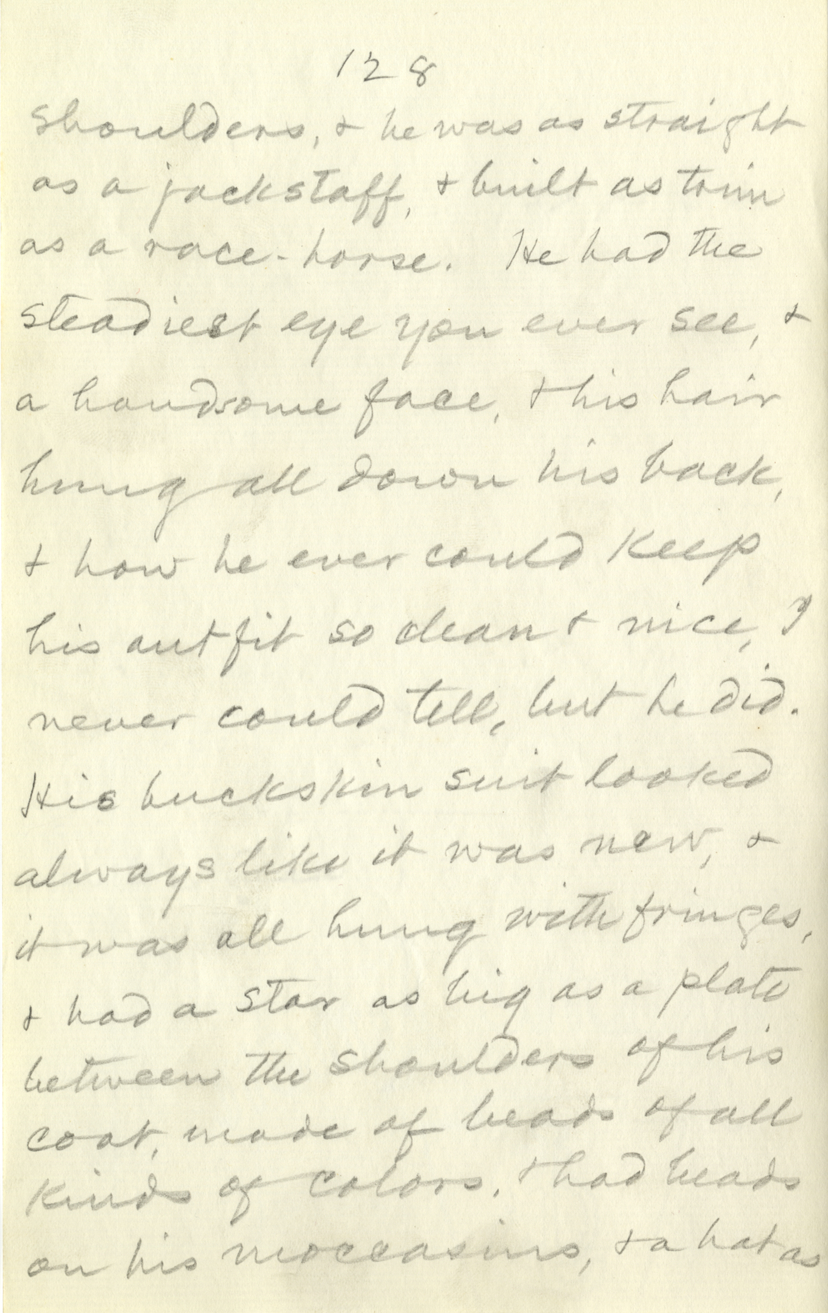 128
shoulders, & he was as straight
as a jackstaff, & built as trim
as a race-horse. He had the
steadiest eye you ever see, &
a handsome face, & his hair
hung all down his back,
& how he ever could keep
his outfit so clean & nice, I
never could tell, but he did.
His buckskin suit looked
always like it was new, &
it was all hung with fringes,
& had a star as big as a plate
between the shoulders of his
coat, made of beads of all
kinds of colors, & had beads
on his moccasins, & a hat as